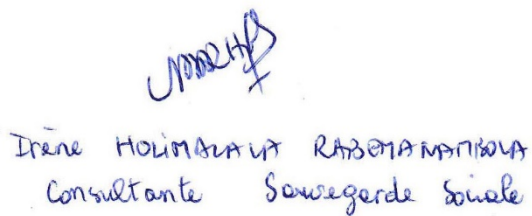 Irène HOLIMALALA RABEMANAMBOLA
Consultante Sauvegarde Sociale